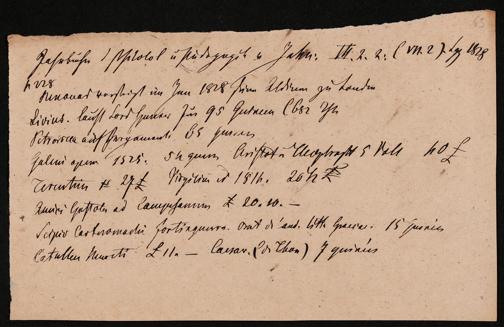 Jahrbücher f Philolol u Pädagogik v Jahn. III. 2. 2. (VII. 2) Lpz 1828
p 228
Renouard versteigt im Jun 1828 seine Aldinen zu London
Livius. kauft Lord Spencer für 95 Guineen
Petrarca auf Pergament 65 guineen
Galeni opera 1525. 54 guin Aristot u Theophrast 5 Voll 40 £
Terentius 27 £ Virgilius 1514. 26½ £
ad £ 20. 10. —
Scipio Carteromachi Fortiguerra. Orat d. and. litt. Graecar. 15 guineen
Catullus Mureti £ 11. — Caesar. (di Thou) 7 guineen